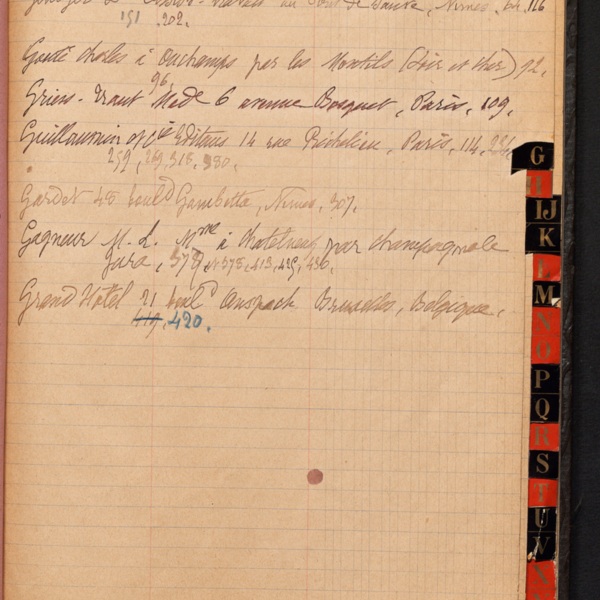 du Pont de Nîmes, 64, 116
151 202.
Gouté Charles à Ouchamps par les Montils (Loir et Cher) 92.
96,
Griess-Traut Mede 6 avenue Bosquet, Paris, 109,
Guillaumin & Cie Editeurs 14 rue Richelieu, Paris, 114, 231,
259, 318, 380.
Gardet 45 bould Gambetta, Nîmes, 307.
Gagneur M. L. Mme à Chatelneuf par Champagnole
Jura, 373, 413, 425, 436.
Grand Hotel 21 boul Anspach Bruxelles, Belgique,
419, 420.
G
H
IJ
K
L
M
N
O
P
Q
R
S
T
U
V